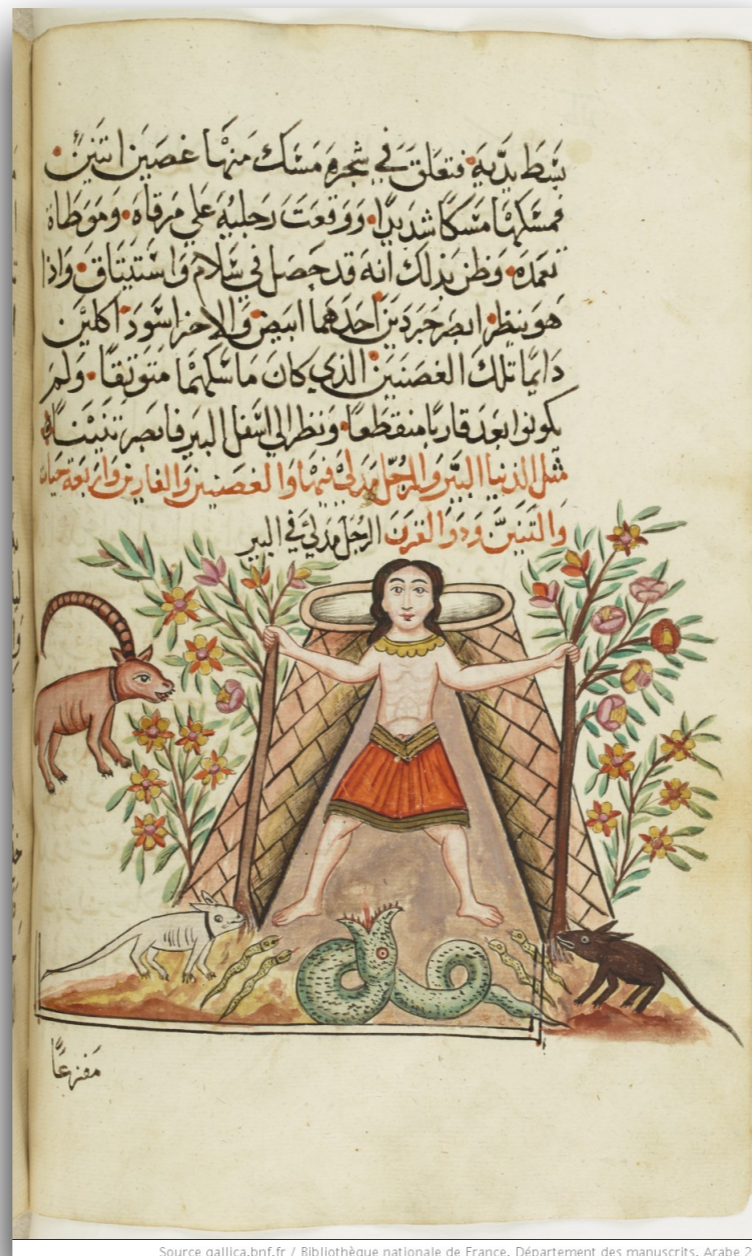 بسَط يدَّيه فتعَلق في شجره مَسَك مَنهْا غصَين اثنين
فمسَكهْا مَسَكا شديدًا ووَقعَتَ رَجليهُ عَلي مرقاه ومَوَطاة
تعمدَه وَظن بذلك انهَ قد حَصَل في سَلام وَاسَتيَثاق وَاذا
هوَ ينظر ابصرَ جَرَدين احَدهمَا ابيَض وَالاخر اسَود اكليَن
دَايماً تلك الغصَنيَن الذي كان ماسَكهمَا مَتوَثقاً وَلم
يَكونوا بَعدَ قاربَا مَنقطعاً وَنظر الي اسَفل البير فابصرَ تنينا
مَثل الدنيا البيَر وَالرجل مَدلي فيهَا وَالغصَنين وَالفارين وَاربَعة حيات
وَالتنينَ وَالقرَن الرجل مَدلي في البير
مَفزعاً
Source gallica.bnf.fr / Bibliothèque nationale de France. Département des manuscrits. Arabe